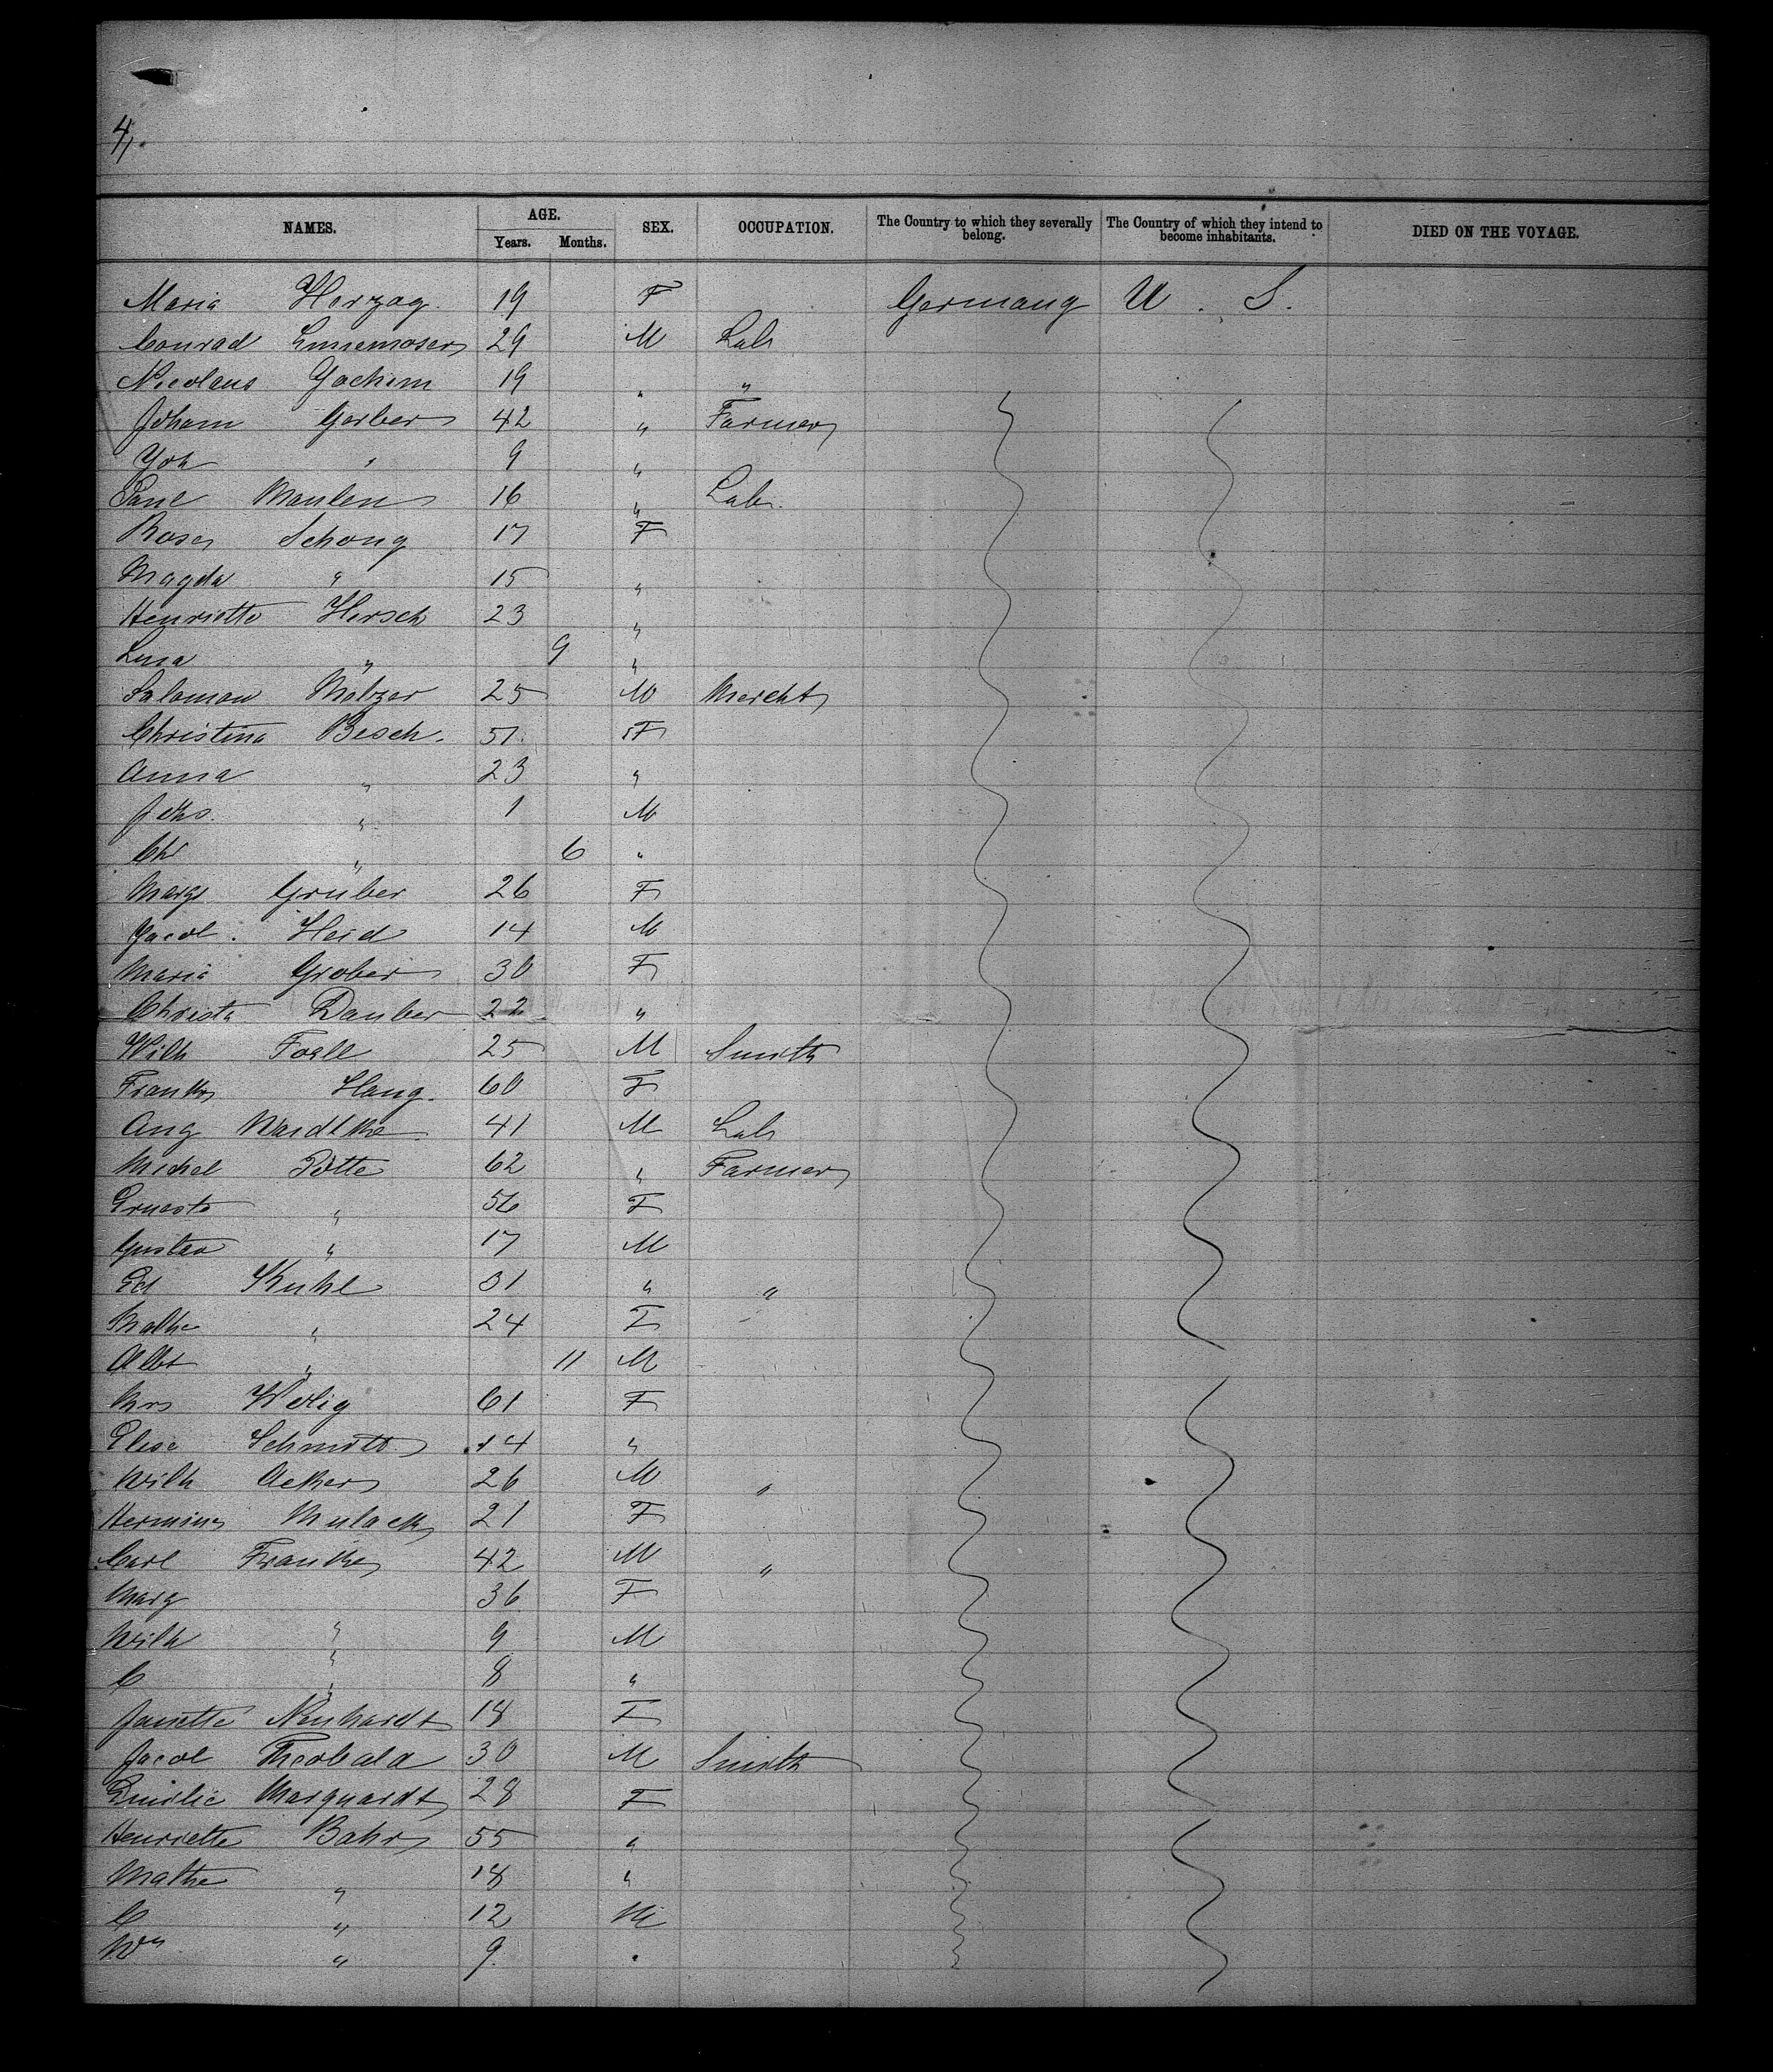 4,
NAMES. AGE. SEX. OCCUPATION. The Country to which they severally belong. The Country of which they intend to become inhabitants. DIED ON THE VOYAGE.
Years. Months.
Maria Herzog. 19 F Germany U. S.
Conrad 29 M Lab
Nicolaus Jochim 19 " "
Johann Gerber 42 " Farmer
Joh " 9 "
16 " Lab.
Rosa Schong 17 F
Magda " 15 "
Henriette Hirsch 23 "
Lina " 9 "
Salomon Melzer 25 M Mercht
Christina Besch. 51. F
Anna " 23 "
Johs. " 1 M
Chr " 6 "
Marg Gruber 26 F
Jacob. Heid 14 M
Maria Grober 30 F
Christa Dauber 22 "
Wilh 25 M Smith
Haug. 60 F
Aug 41 M Lab
Michel Potte 62 " Farmer
Ernesta " 56 F
Gustav " 17 M
Ed Kuhl 31 " "
Mathe " 24 F
Albt " 11 M
Mrs 61 F
Elise Schmitt 14 "
Wilh Acker 26 M "
Hermine Mulack 21 F
Carl Franke 42 M "
Marg 36 F
Wilh " 9 M
C " 8 "
" 
Janette Neuhardt 18 F
Jacob Theobald 30 M Smith
Emilie Marquardt 28 F
Henriette Bahr 55 "
Mathe " 18 "
C " 12 M
Wm " 9 "